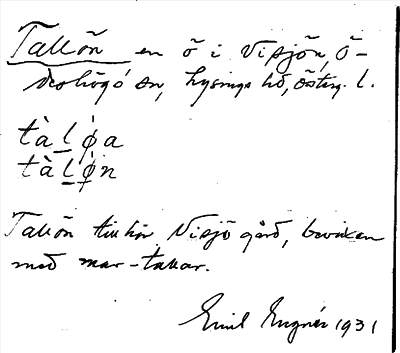 Tallön en ö i Visjön, Ö-
deshögs sn, Lysings hd, Östg. l.
tàlø̣a
tàlø̣n
Tallön tillhör Visjö gård, bevuxen
med mar-tallar.
Emil Engnér 1931